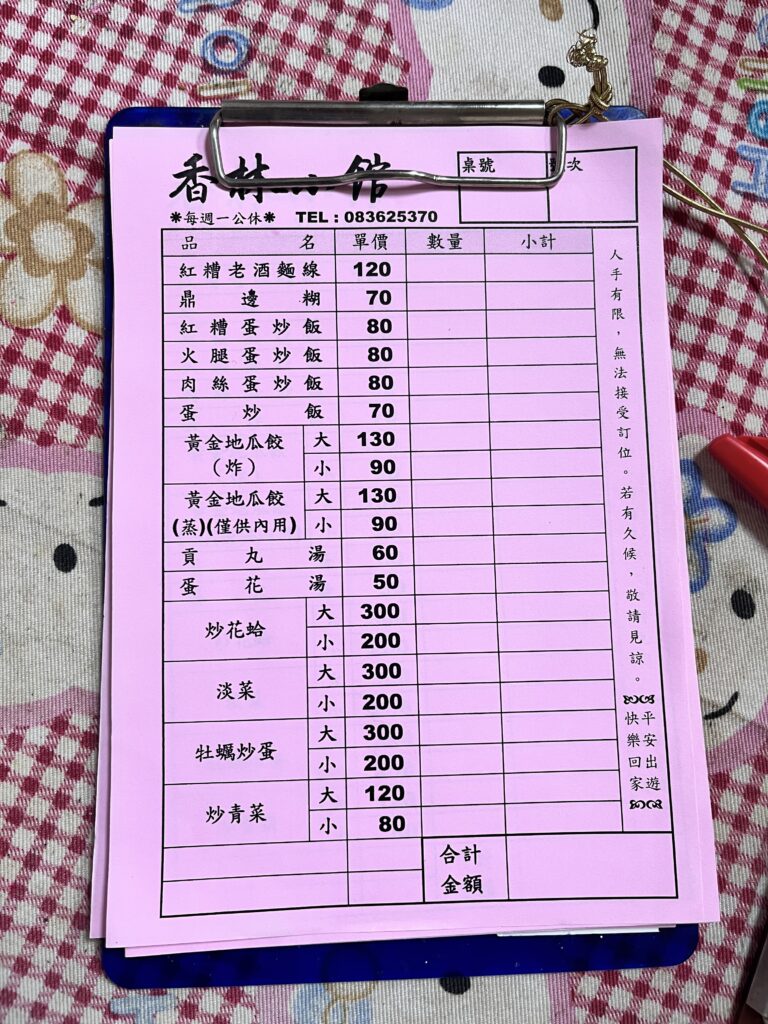 香林小館
桌號
次
*每週一公休* TEL：083625370
品名 單價 數量 小計
紅糟老酒麵線 120
鼎邊糊 70
紅糟蛋炒飯 80
火腿蛋炒飯 80
肉絲蛋炒飯 80
蛋炒飯 70
黃金地瓜餃（炸） 大 130
小 90
黃金地瓜餃(蒸)(僅供內用) 大 130
小 90
貢丸湯 60
蛋花湯 50
炒花蛤 大 300
小 200
淡菜 大 300
小 200
牡蠣炒蛋 大 300
小 200
炒青菜 大 120
小 80
合計
金額
人手有限，無法接受訂位。若有久候，敬請見諒。
平安出遊
快樂回家